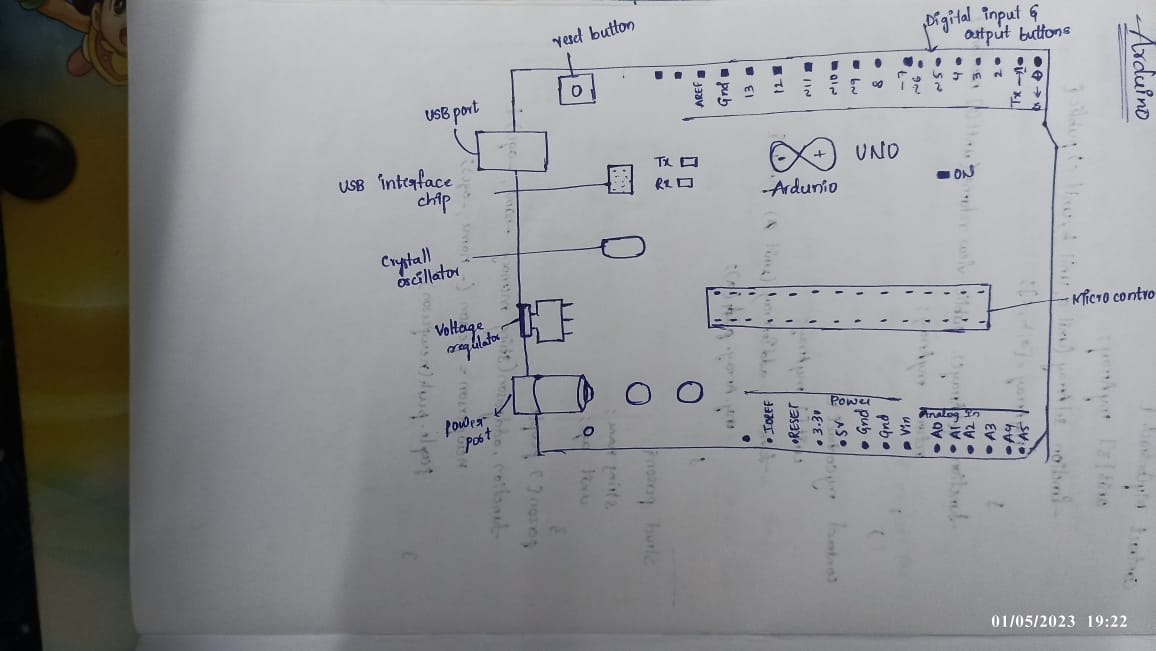 Arduino
reset button
Digital input &
output buttons
AREF
Gnd
13
12
~11
~10
~9
8
~7
~6
~5
4
~3
2
Tx→1
0
USB port
USB interface
chip
Tx
Rx
UNO
Ardunio
ON
Crystall
oscillator
Voltage
regulator
Micro contro
power
post
Power
IOREF
RESET
3.3V
5V
Gnd
Gnd
Vin
Analog In
A0
A1
A2
A3
A4
A5
01/05/2023 19:22